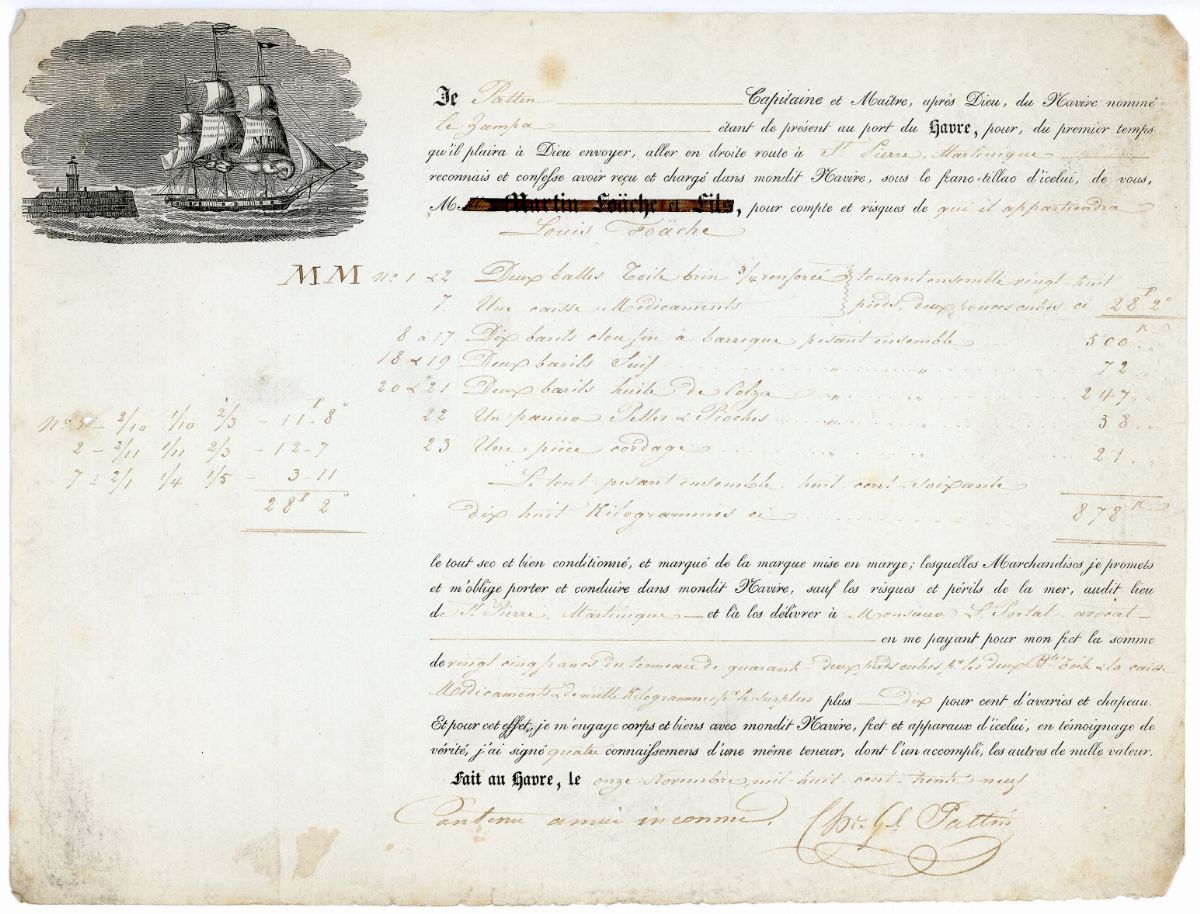 Je Pattin Capitaine et Maître, après Dieu, du Navire nommé
le Zampa étant de présent au port du Havre, pour, du premier temps
qu'il plaira à Dieu envoyer, aller en droite route à St. Pierre, Martinique
reconnais et confesse avoir reçu et chargé dans mondit Navire, sous le franc-tillac d'icelui, de vous,
M Martin Foäche et Fils, pour compte et risques de qui il appartiendra
Louis Foäche
MM No. 1 & 2 Deux balles Toile brin 3/4 renforcé toisant ensemble vingt-huit
7 Une caisse Médicaments pieds, deux pouces cubes ci 28P 2o
8 à 17 Dix barils clou fin à barrique pesant ensemble 500K
18 & 19 Deux barils Suif " " 72
20 & 21 Deux barils huile de Colza " " 247
22 Un panier Pelles & Pioches " " 38
23 Une pièce cordage " " 21
Le tout pesant ensemble huit cent soixante
dix huit Kilogrammes ci 878K
2/10 1/10 2/3 - 11P 8o
2 - 2/11 1/11 2/3 - 12-7
7 - 2/1 1/4 1/5 - 3-11
28P 2o
le tout sec et bien conditionné, et marqué de la marque mise en marge; lesquelles Marchandises je promets
et m'oblige porter et conduire dans mondit Navire, sauf les risques et périls de la mer, audit lieu
de St. Pierre, Martinique et là les délivrer à Monsieur L. Portal, avocat
en me payant pour mon fret la somme
de vingt cinq francs du tonneau de quarante-deux pieds cubes pr. les deux Blles. Toile & la caisse
Médicaments & de mille Kilogrammes pr. le surplus plus Dix pour cent d'avaries et chapeau.
Et pour cet effet, je m'engage corps et biens avec mondit Navire, fret et apparaux d'icelui, en témoignage de
vérité, j'ai signé quatre connaissemens d'une même teneur, dont l'un accompli, les autres de nulle valeur.
Fait au Havre, le onze Novembre mil-huit-cent-trente neuf
Contenu a moi inconnu. Pattin